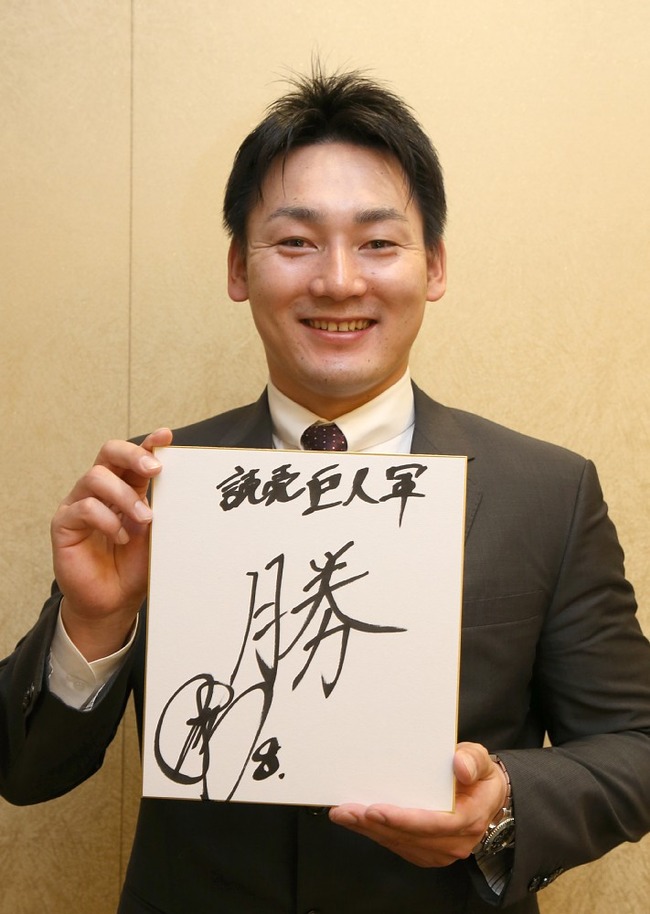 読売巨人軍
勝
8.